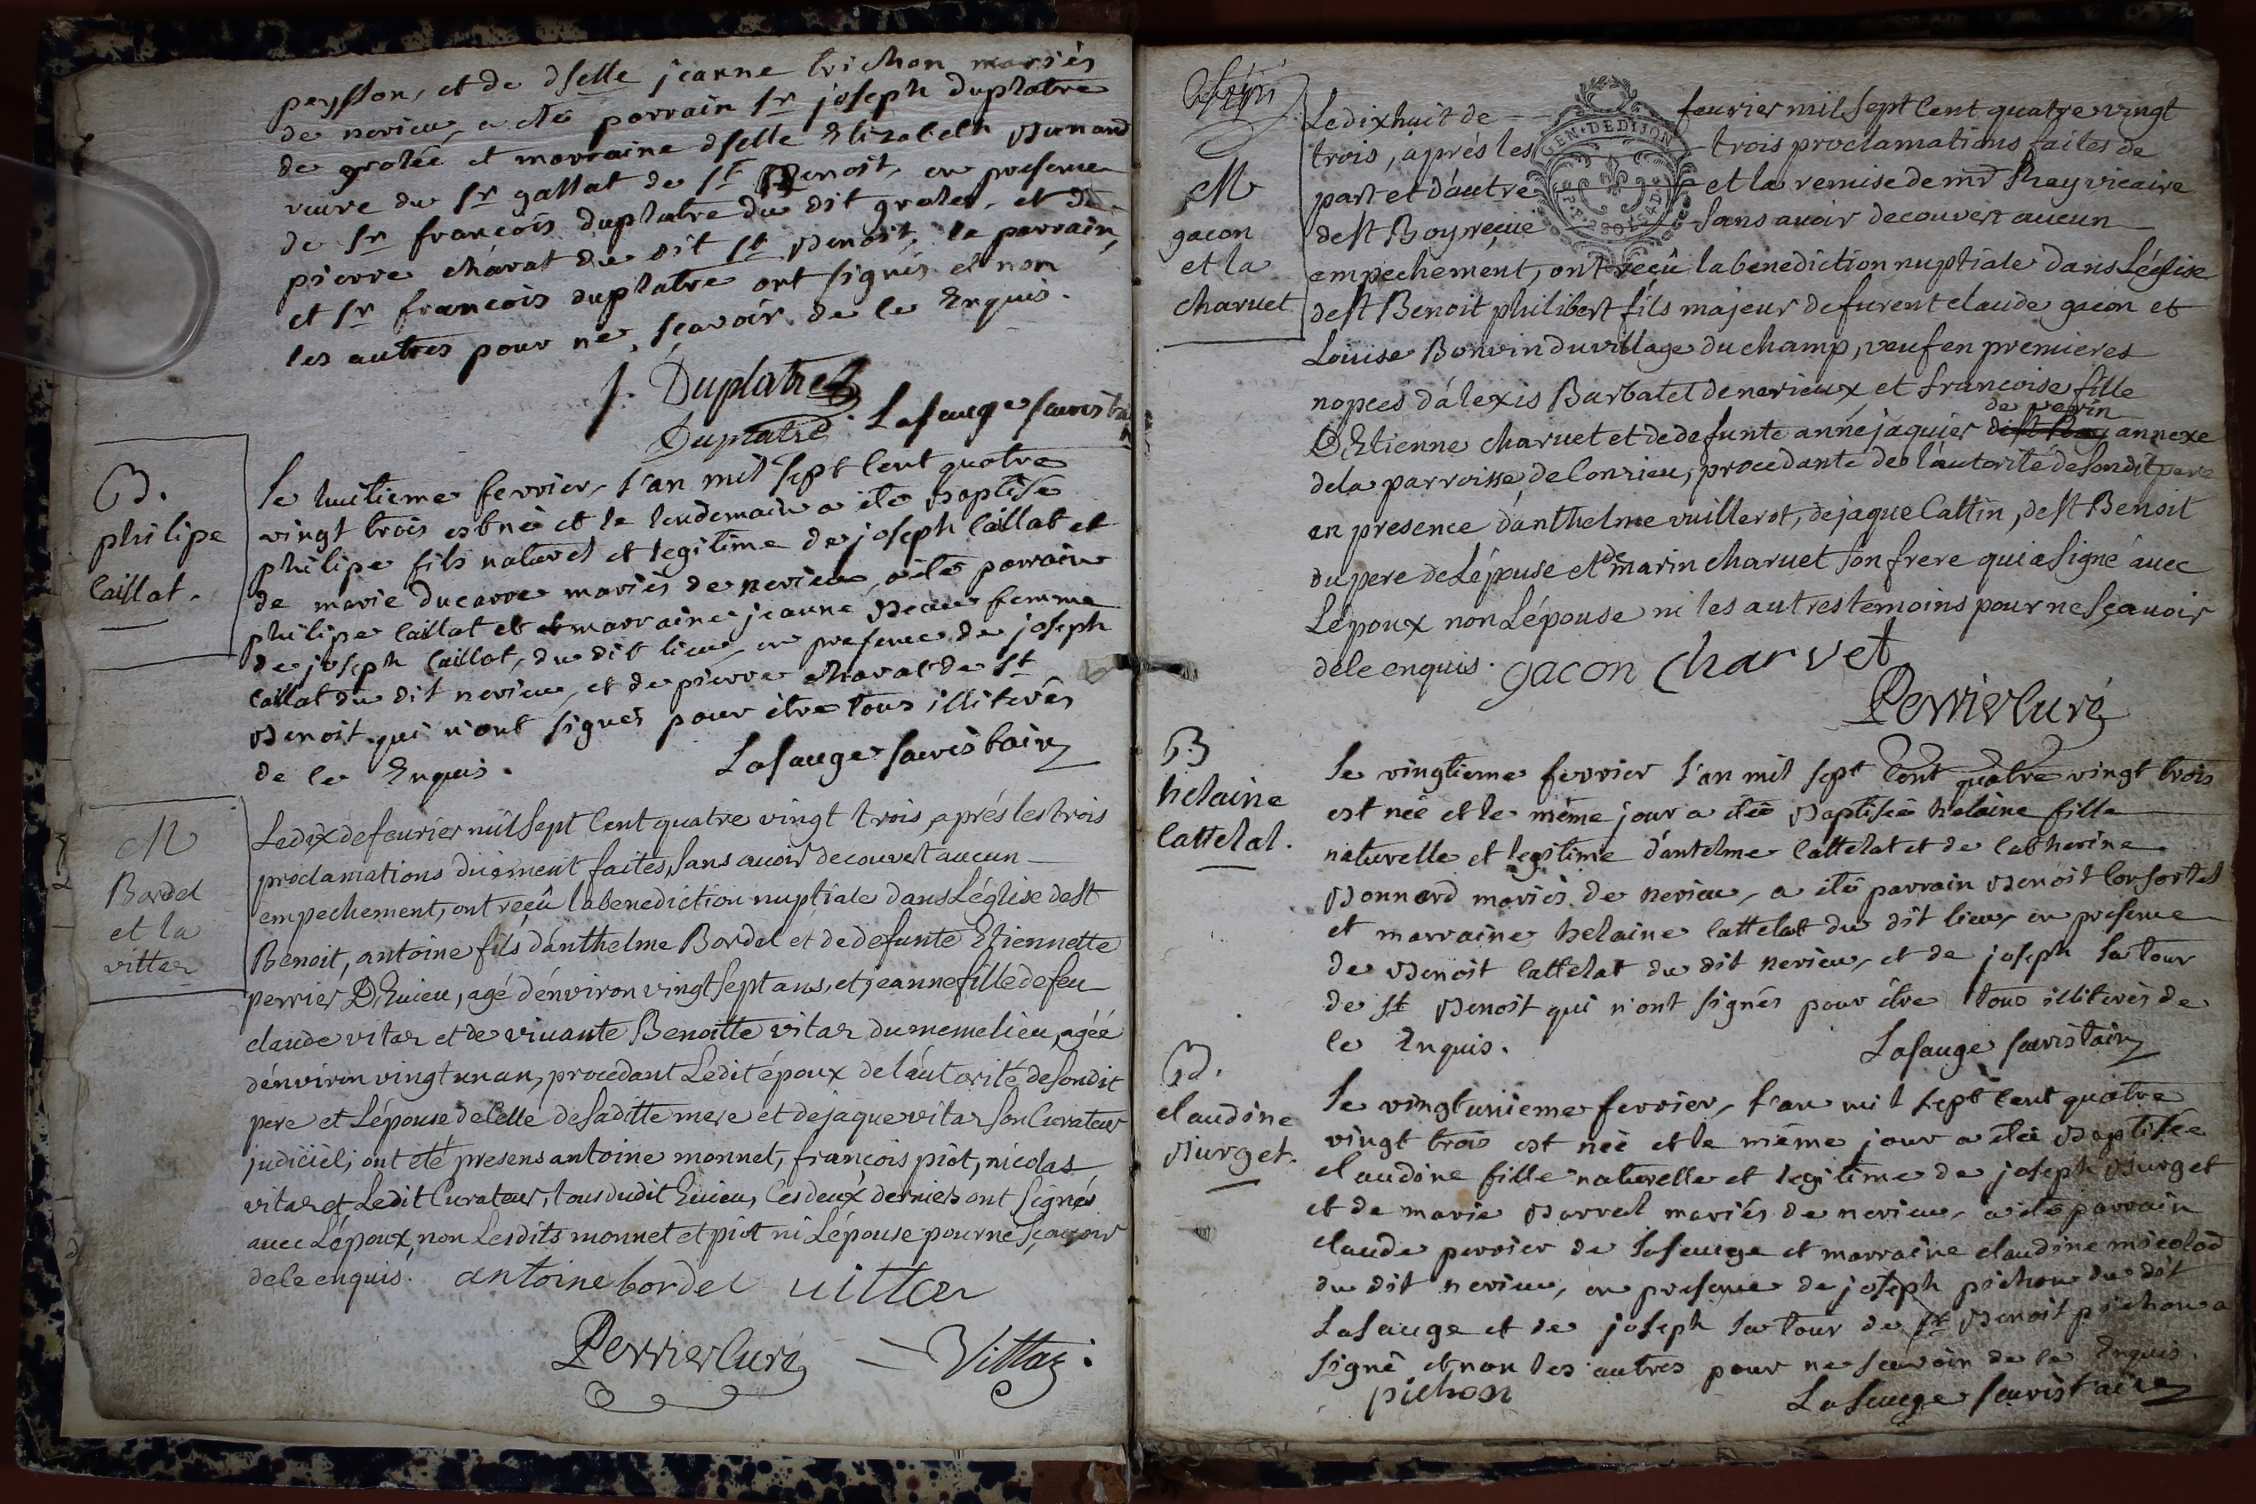 peysson, et de dselle jeanne trichon mariés
de nerieu, a été parrain sr joseph Duplatre
de grolée et marraine dselle Elizabeth Bernard
veuve du sr gallat de st Benoit, en presence
de sr françois duplatre du dit grolée, et de
pierre chavat du dit st Benoit, le parrain,
et sr françois duplatre ont signés et non
les autres pour ne sçavoir de le Enquis.
j. Duplatre
Duplatre. Lasauge sacristain
B.
philipe
Caillat.
le huitieme fevrier, l'an mil sept Cent quatre
vingt trois est né et le lendemain a été Baptisé
philipe fils naturel et legitime de joseph Caillat et
de marie Ducarre mariés de nerieu, a été parrain
philipe Caillat et marraine jeanne Beau femme
de joseph Caillat, du dit lieu, en presence de joseph
Caillat du dit nerieu, et de pierre chavat de st
Benoit qui n'ont signés pour être tous illiterés
de le Enquis.
Lasauge sacristain
M
Bordel
et la
vittaz
Le dix de feurier mil Sept Cent quatre vingt trois, aprés les trois
proclamations duëment faites, sans auoir decouvert aucun
empechement, ont reçû la benediction nuptiale dans L'église de st
Benoit, antoine fils d'anthelme Bordel et de defunte Etiennette
perrier D'Euieu, agé d'énviron vingt sept ans, et jeanne fille de feu
claude vitaz et de viuante Benoitte vitaz du meme lieu, agéé
d'énviron vingt un an, procedant Ledit époux de l'áutorité de son dit
pere et L'épouse de Celle de sa ditte mere et de jaque vitaz son Curateur
judiciel; ont été presens antoine monnet, françois piot, nicolas
vitaz et Ledit Curateur, tous dudit Euieu, Ces deux derniers ont signés
auec L'époux, non Lesdits monnet et piot ni L'épouse pour ne sçauoir
de le enquis. antoine bordel vittaz
Perrier Curé Vittaz.
M
gacon
et la
charuet
Le dixhuit de feurier mil Sept Cent quatre vingt
trois, aprés les trois proclamations faites de
part et d'autre et la remise de mr Ray vicaire
de st Boy reçuë sans auoir decouvert aucun
empechement, ont reçû la benediction nuptiale dans L'église
de st Benoit philibert fils majeur de furent claude gacon et
Louise Bonvin du village du champ, veuf en premieres
nopces d'álexis Barbatel de nerieux, et francoise fille
D'Etienne charuet et de defunte anne jaquier de verin annexe
de la parroisse de Conzieu, procedante de l'áutorité de son dit pere
en presence d'anthelme vuillerot, de jaque Cattin, de st Benoit
du pere de L'épouse et de marin charuet son frere qui a signé áuec
L'époux non L'épouse ni les autres temoins pour ne sçauoir
de le enquis. gacon Charvet
Perrier Curé
GEN·DEDIJON
B
helaine
Cattelat.
le vingtieme fevrier l'an mil sept Cent quatre vingt trois
est née et le même jour a été Baptisée helaine fille
naturelle et legitime d'antelme Cattelat et de Catherine
Bonnard mariés de nerieu, a été parrain Benoit Consortel
et marraine helaine Cattelat du dit lieu, en presence
de Benoit Cattelat du dit nerieu, et de joseph la tour
de st Benoit qui n'ont signés pour être tous illiterés de
le Enquis.
Lasauge sacristain
B.
claudine
Burget.
le vingtunieme fevrier, l'an mil sept Cent quatre
vingt trois est née et le même jour a été Baptisée
claudine fille naturelle et legitime de joseph Burget
et de marie Barral mariés de nerieu, a été parrain
claude perrier de Lasauge et marraine claudine micolod
du dit nerieu, en presence de joseph pichon du dit
Lasauge et de joseph la tour de st Benoit pichon a
signé et non les autres pour ne scavoir de le Enquis.
pichon
Lasauge sacristain